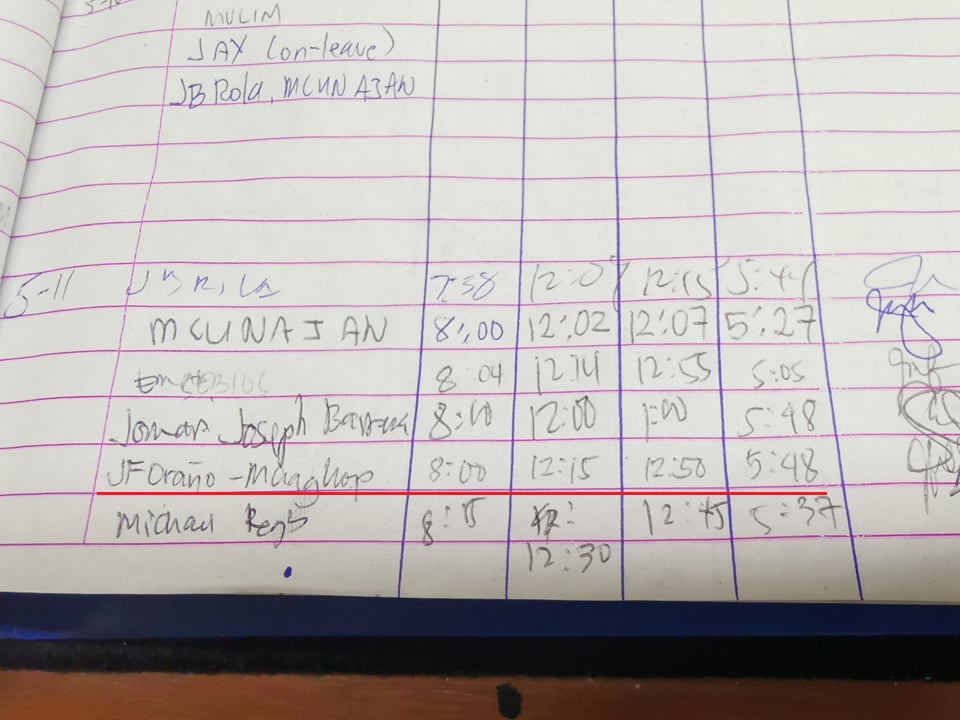 MULIM
JAY (on-leave)
JB Rola, MCUNAJAN
5-11 7:38 12:07 12:15
MCUNAJAN 8:00 12:02 12:07 5:27
8:04 12:14 12:55 5:05
Joseph 8:00 12:00 1:00 5:48
JF Oraño - 8:00 12:15 12:50 5:48
Michael 8:15 12:45 5:37
12:30